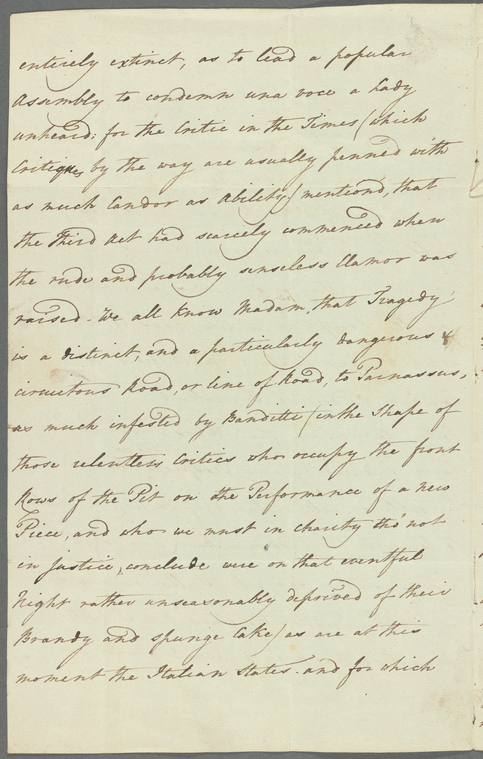 entirely extinct, as to lead a popular
Assembly to condemn una voce a Lady
unheard; for the Critic in the Times (which
Critiques by the way are usually penned with
as much Candor as Ability) mention'd, that
the Third Act had scarcely commenced when
the rude and probably senseless Clamor was
raised - We all know Madam, that Tragedy
is a distinct, and a particularly dangerous &
circuitous Road, or line of Road, to Parnassus,
as much infested by Banditti (in the Shape of
those relentless Critics who occupy the front
Rows of the Pit on the Performance of a new
Piece, and who we must in charity tho' not
in Justice, conclude were on that eventful
Night rather unseasonably deprived of their
Brandy and spunge Cake) as are at this
moment the Italian States - and for which